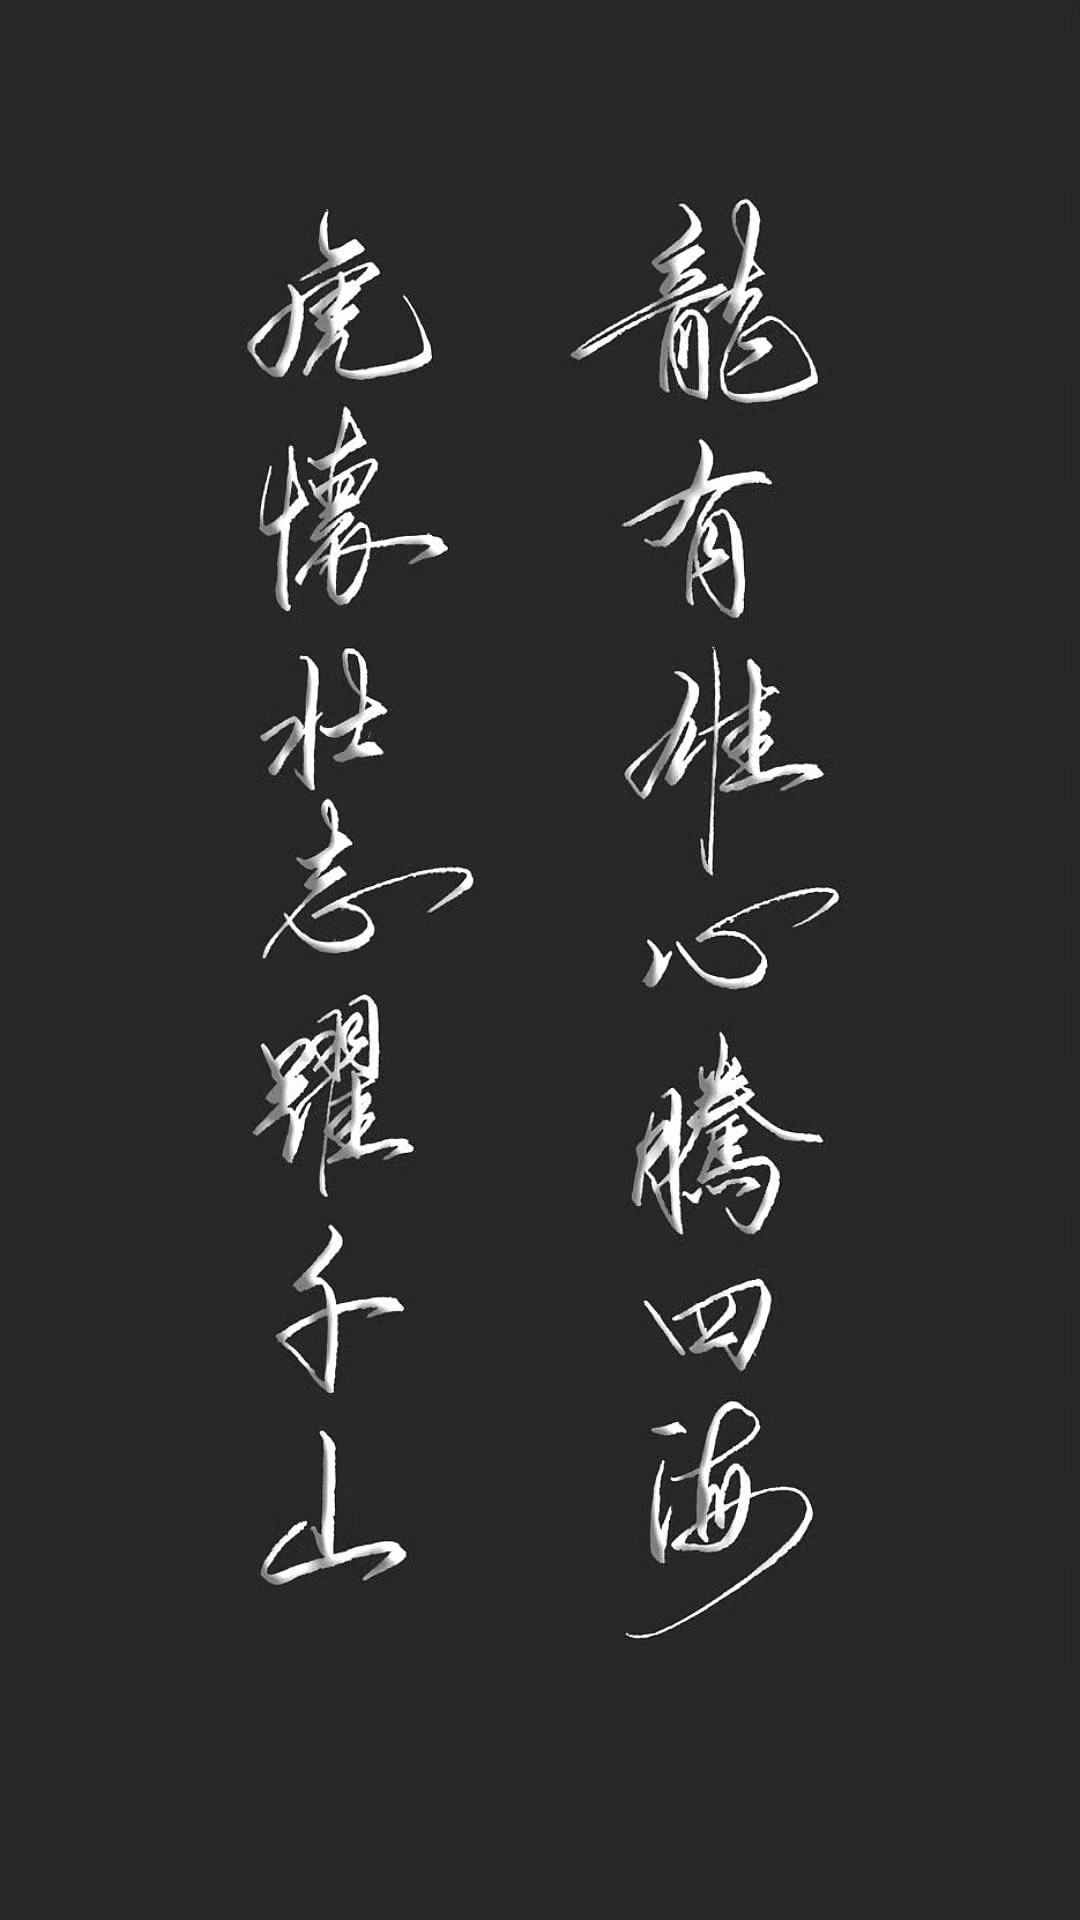 龍有雄心騰四海
虎懷壯志躍千山